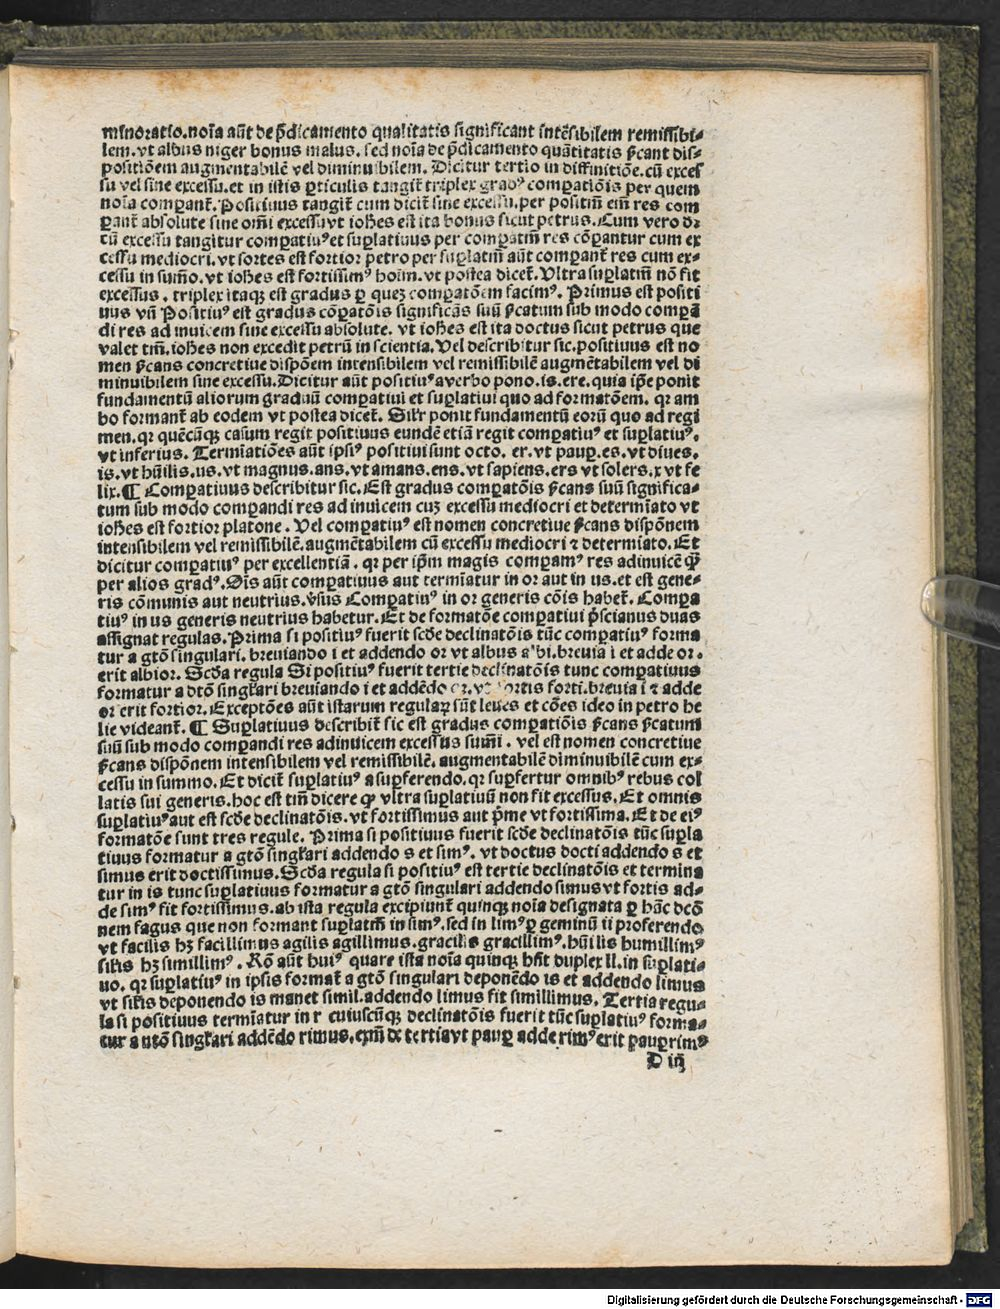 minoratio. noīa aūt de p̄dicamento qualitatis significant intēsibilem remissibi-
lem. vt albus niger bonus malus. sed noīa de p̄dicamento quātitatis ſcant dis-
positiōem augmentabilē vel diminuibilem. Dicitur tertio in diffinitiōe. cū exces
su vel sine excessu. et in istis ꝑticulis tangit̄ triplex gradꝰ comꝑatiōis per quem
noīa comꝑant̄. Positiuus tangit̄ cum dicit̄ sine excessu. per positiuū em̄ res com
ꝑant̄ absolute sine om̄i excessu vt ioh̄es est ita bonus sicut petrus. Cum vero dr
cū excessu tangitur comꝑatiuꝰ et suꝑlatiuus per comꝑatiuū res cōꝑantur cum ex
cessu mediocri. vt sortes est fortior petro per suꝑlatiuū aūt comꝑant̄ res cum ex-
cessu in sum̄o. vt ioh̄es est fortissimꝰ hoīm. vt postea dicet̄. Vltra suꝑlatiuū nō fit
excessus. triplex itaqꝫ est gradus ꝑ quez comꝑatōem facimꝰ. Primus est positi
uus vn̄ Positiuꝰ est gradus cōꝑatōis significās suū ſcatum sub modo comꝑā
di res ad inuicem sine excessu absolute. vt ioh̄es est ita doctus sicut petrus que
valet tm̄. ioh̄es non excedit petrū in scientia. Vel describitur sic. positiuus est no
men ſcans concretiue dispōem intensibilem vel remissibilē augmētabilem vel di
minuibilem sine excessu. Dicitur aūt positiuꝰ a verbo pono. is. ere. quia ip̄e ponit
fundamentū aliorum graduū comꝑatiui et suꝑlatiui quo ad formatōem. qr am
bo formant̄ ab eodem vt postea dicet̄. Silr ponit fundamentū eorū quo ad regi
men. qr quēcūqꝫ casum regit positiuus eundē etiā regit comꝑatiuꝰ et suꝑlatiuꝰ.
vt inferius. Terminatiōes aūt ipsiꝰ positiui sunt octo. er. vt pauꝑ. es. vt diues.
is. vt hūilis. us. vt magnus. ans. vt amans. ens. vt sapiens. ers vt solers. x vt fe
lix. ¶ Comꝑatiuus describitur sic. Est gradus comꝑatōis ſcans suū significa-
tum sub modo comꝑandi res ad inuicem cuꝫ excessu mediocri et determīato vt
ioh̄es est fortior platone. Vel comꝑatiuꝰ est nomen concretiue ſcans dispōnem
intensibilem vel remissibilē. augmētabilem cū excessu mediocri ⁊ determīato. Et
dicitur comꝑatiuꝰ per excellentiā. qr per ip̄m magis comꝑamꝰ res adinuicē ꝙ̄
per alios gradꝰ. Oīs aūt comꝑatiuus aut termīatur in or aut in us. et est gene-
ris cōmunis aut neutrius. v̄sus Comꝑatiuꝰ in or generis cōis habet̄. Comꝑa
tiuꝰ in us generis neutrius habetur. Et de formatōe comꝑatiui p̄scianus duas
assignat regulas. Prima si positiuꝰ fuerit scd̄e declinatōis tūc comꝑatiuꝰ forma
tur a gtō singulari. breuiando i et addendo or vt albus albi. breuia i et adde or.
erit albior. Scd̄a regula Si positiuꝰ fuerit tertie declinatōis tunc comꝑatiuus
formatur a dtō singłari breuiando i et addēdo or. vt fortis forti. breuia i ⁊ adde
or erit fortior. Exceptōes aūt istarum regulaꝝ sūt leues et cōes ideo in petro he
lie videant̄. ¶ Suꝑlatiuus describit̄ sic est gradus comꝑatiōis ſcans ſcatum
suū sub modo comꝑandi res adinuicem excessus sum̄i. vel est nomen concretiue
ſcans dispōnem intensibilem vel remissibilē. augmentabilē diminuibilē cum ex-
cessu in summo. Et dicit̄ suꝑlatiuꝰ a suꝑferendo. qr suꝑfertur omnibꝰ rebus col
latis sui generis. hoc est tm̄ dicere ꝙ vltra suꝑlatiuū non fit excessus. Et omnis
suꝑlatiuꝰ aut est scd̄e declinatōis. vt fortissimus aut p̄me vt fortissima. Et de eiꝰ
formatōe sunt tres regule. Prima si positiuus fuerit scd̄e declinatōis tūc suꝑla
tiuus formatur a gtō singłari addendo s et simꝰ. vt doctus docti addendo s et
simus erit doctissimus. Scd̄a regula si positiuꝰ est tertie declinatōis et termina
tur in is tunc suꝑlatiuus formatur a gtō singulari addendo simus vt fortis ad-
de simꝰ fit fortissimus. ab ista regula excipiunt̄ quinqꝫ noīa designata ꝑ hāc dcō
nem fagus que non formant suꝑlatiuū in simꝰ. sed in limꝰ ꝑ geminū ll proferendo
vt facilis hꝫ facillimus agilis agillimus. gracilis gracillimꝰ. hūilis humillimꝰ
silis hꝫ simillimꝰ. Rō aūt huiꝰ quare ista noīa quinqꝫ hn̄t duplex ll. in suꝑlati-
uo. qr suꝑlatiuꝰ in ipsis format̄ a gtō singulari deponēdo is et addendo limus
vt silis deponendo is manet simil. addendo limus fit simillimus. Tertia regu-
la si positiuus termīatur in r cuiuscūqꝫ declinatōis fuerit tūc suꝑlatiuꝰ forma-
tur a ntō singłari addēdo rimus. exm̄ de tertia vt pauꝑ adde rimꝰ erit pauꝑrimꝰ
D iij
Digitalisierung gefördert durch die Deutsche Forschungsgemeinschaft - DFG